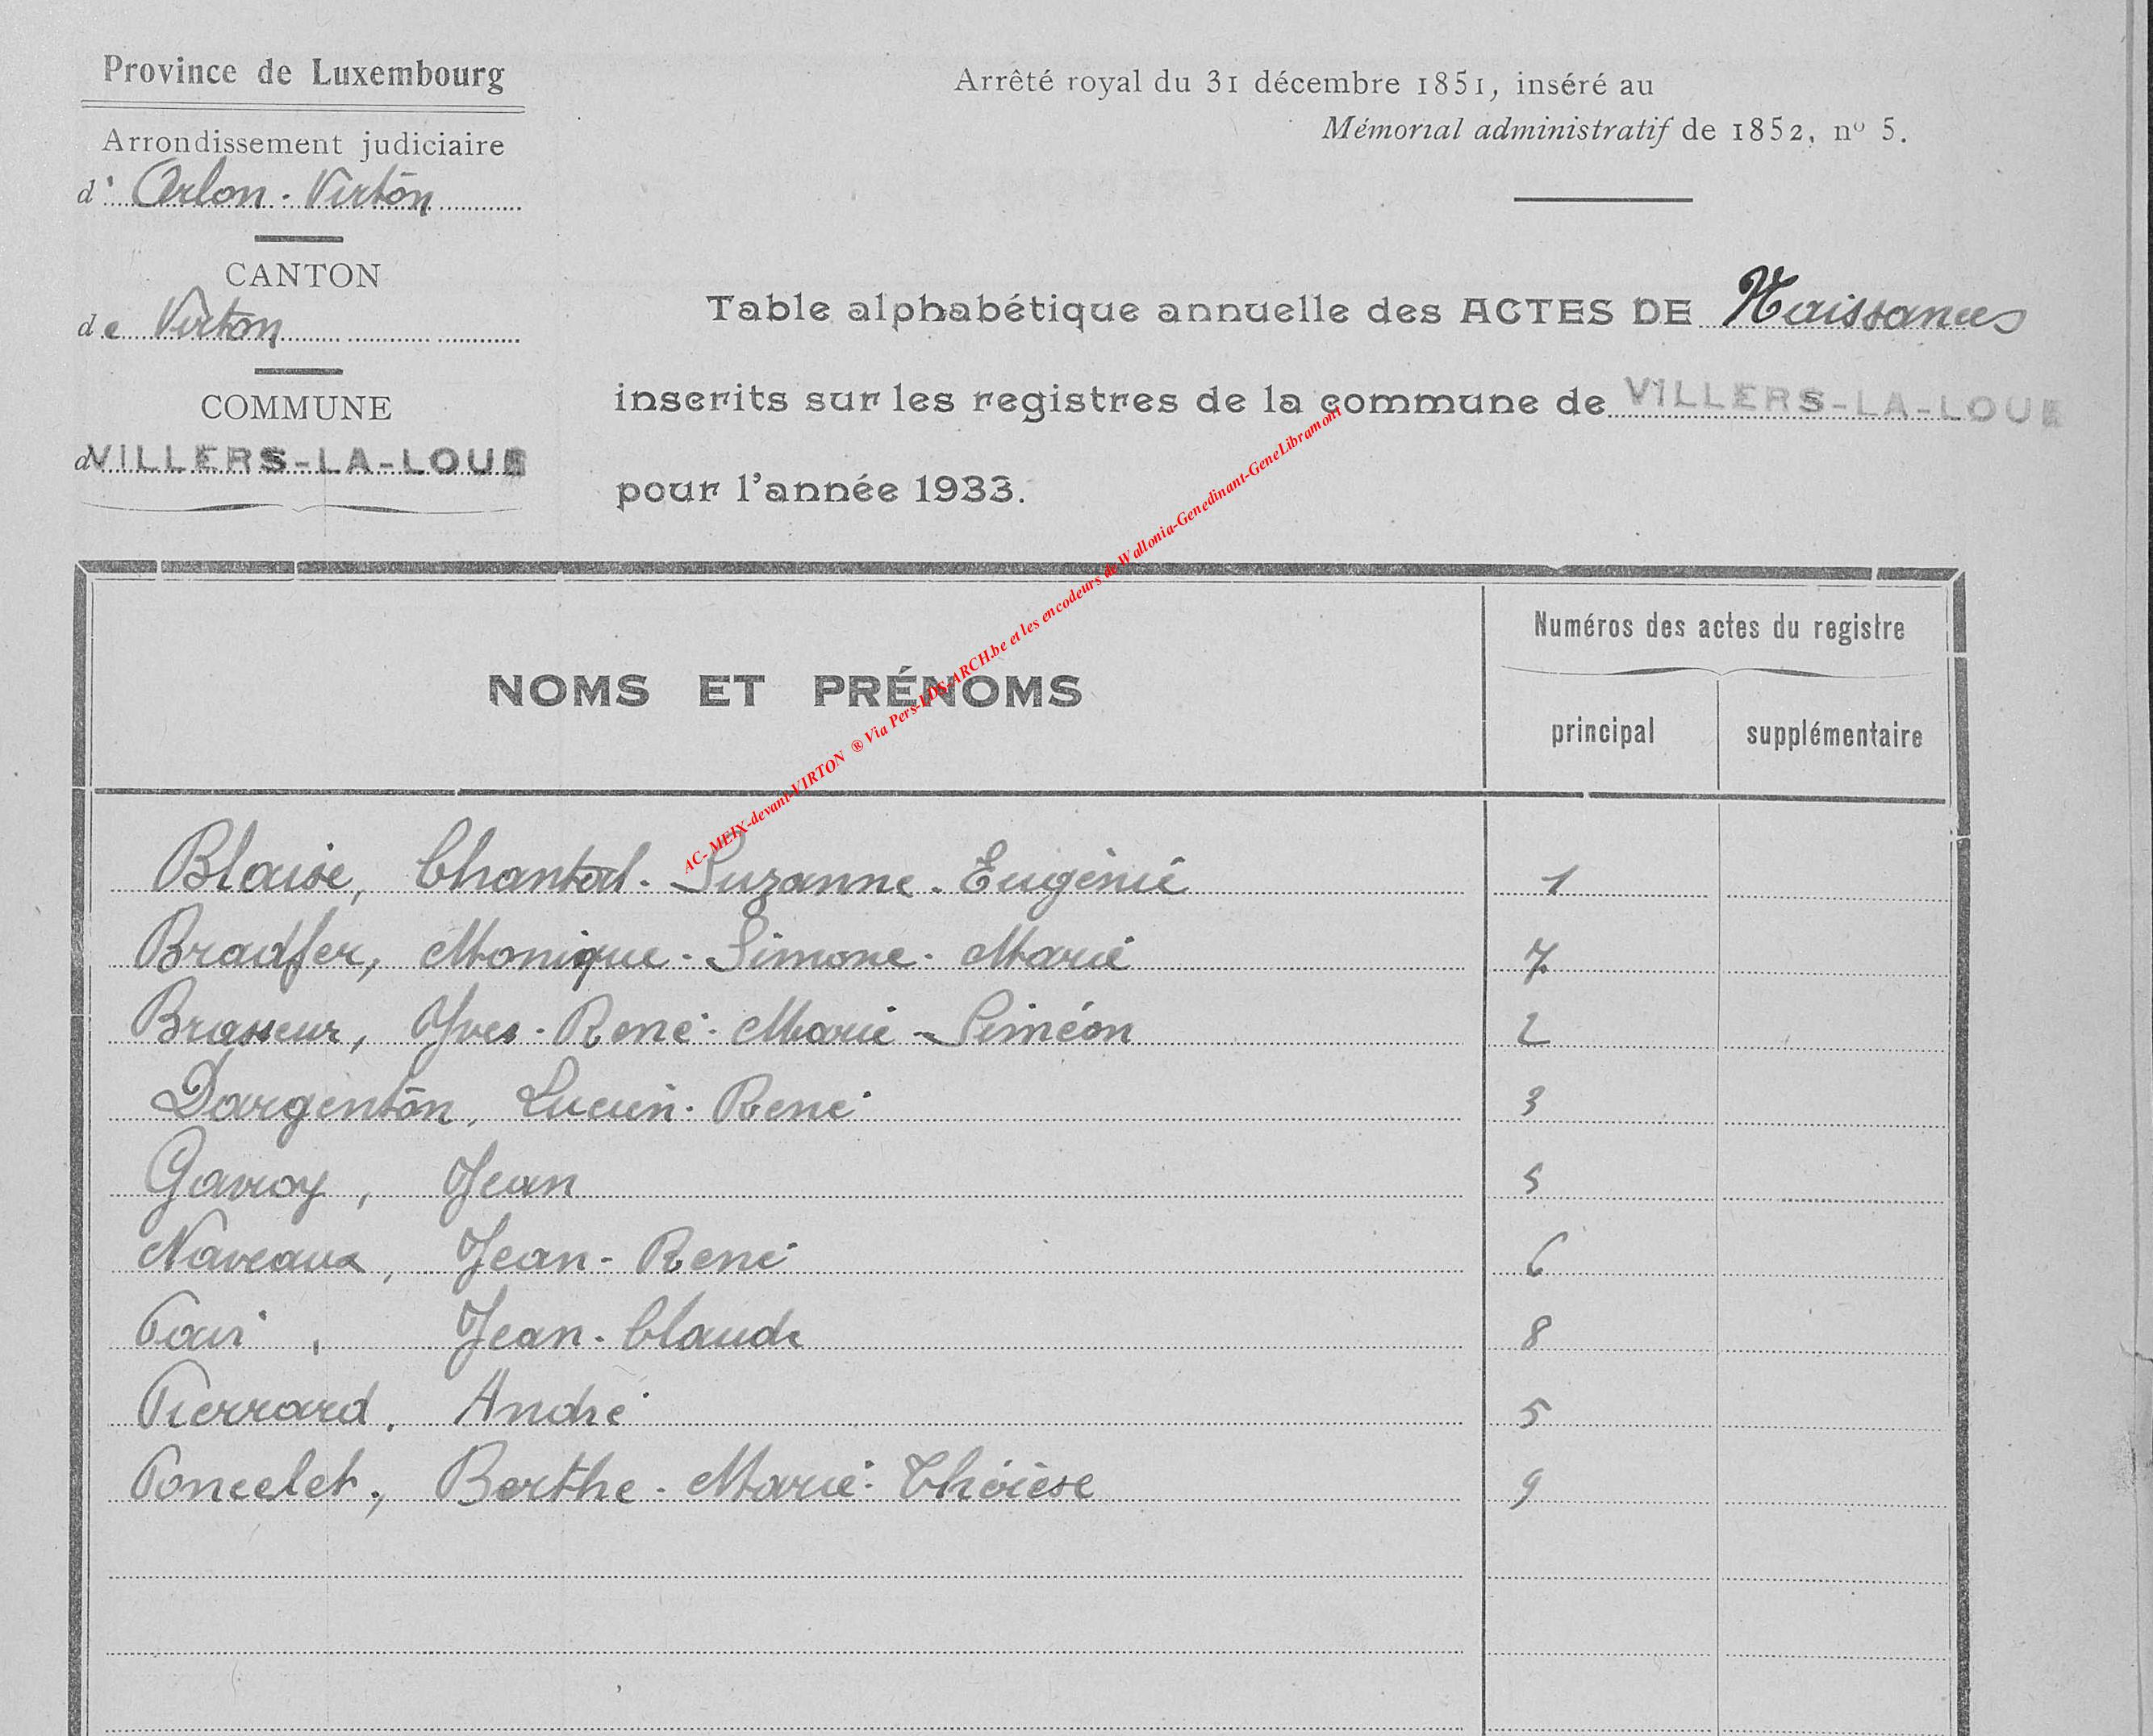 Province de Luxembourg
Arrondissement judiciaire
d' Arlon - Virton
CANTON
de Virton
COMMUNE
d VILLERS-LA-LOUE
Arrêté royal du 31 décembre 1851, inséré au
Mémorial administratif de 1852, nº 5.
Table alphabétique annuelle des ACTES DE Naissances
inscrits sur les registres de la commune de VILLERS-LA-LOUE
pour l'année 1933.
NOMS ET PRÉNOMS
Numéros des actes du registre
principal supplémentaire
AC- MEIX-devant-VIRTON ® Via Pers-LDS-ARCH.be et les encodeurs de Wallonia-Genedinant-GeneLibramont
Blaise, Chantal - Suzanne - Eugénie 1
Bradfer, Monique - Simone - Marie 7
Brasseur, Yves - René - Marie - Siméon 2
Dargenton, Lucien - René 3
Gavroy, Jean 5
Naveaux, Jean - René 6
Jean - Claude 8
Pierrard, André 5
Poncelet, Berthe - Marie - Thérèse 9